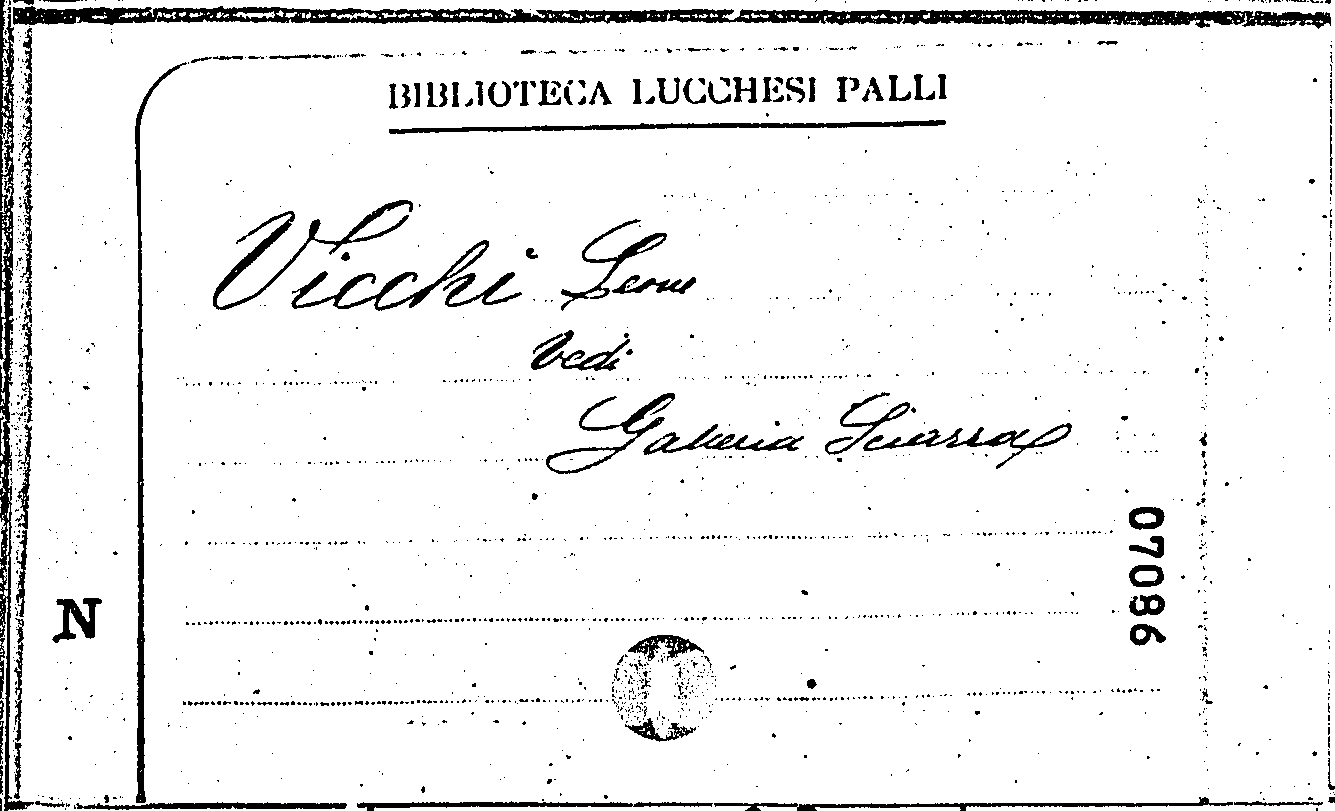 BIBLIOTECA LUCCHESI PALLI
Vicchi Leone
Vedi
Galleria Sciarra
07086
N